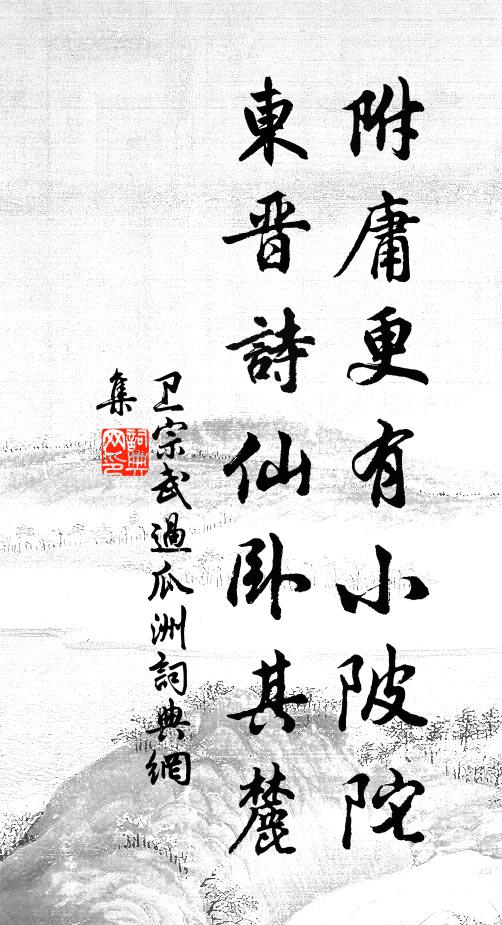 附庸更有小陂陀
東晋詩仙卧其麓
卫宗武過瓜洲詞典網
集
詞典网印